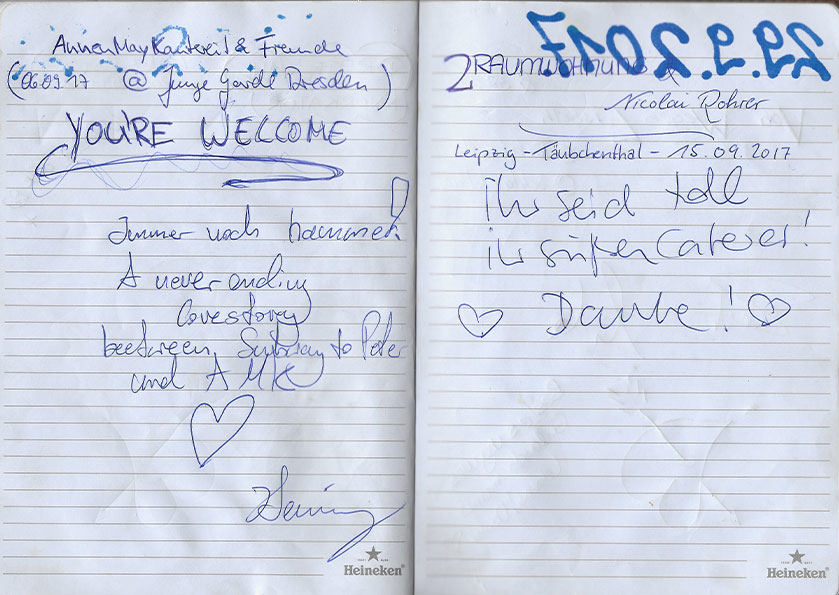 AnnenMayKantereit & Freunde
(06.09.17 @ Junge Garde Dresden)
YOU'RE WELCOME
Immer noch hammer!
A never ending
lovestorey
beetween
und AMK
Heineken
29.9.2017
2RAUMWOHNUNG &
Nicolai Rohrer
Leipzig - Täubchenthal - 15.09.2017
ihr seid toll
ihr süßen Caterer!
Danke!
Heineken